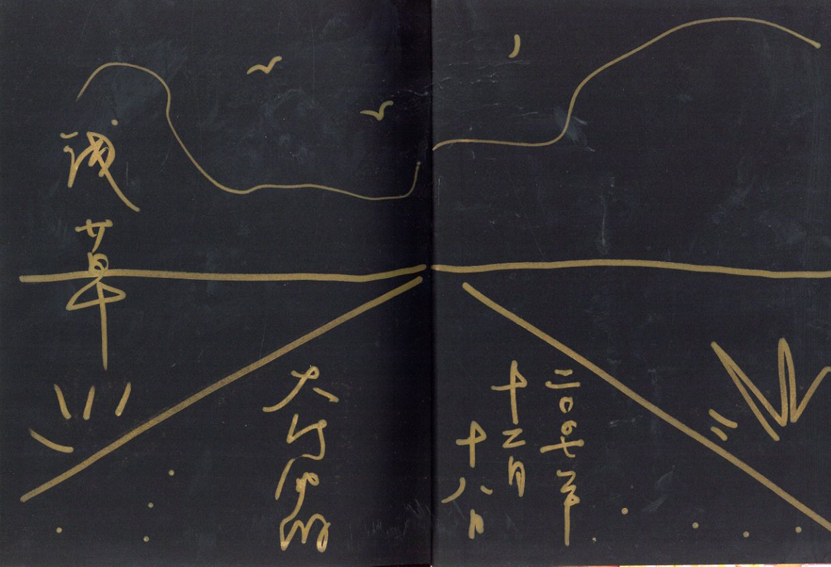 二〇〇七年
十二月
十八日
大竹伸朗
浅草